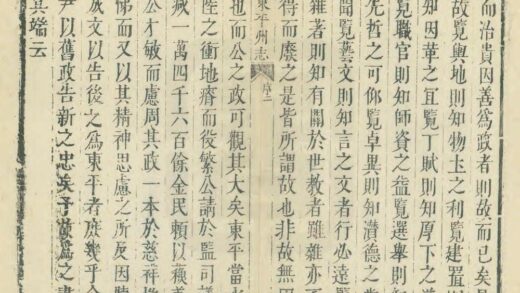 而治貴因善為政者則故而已矣
故覽輿地則知物土之利覽建置
知因革之宜覽丁賦則知厚下之
覓職官則知師資之益覽選舉則知
先哲之可仰覽卓異則知潛德之
開覽藝文則知言之文者行必遠
雜著則知有關於世教者雖雜亦
得而廢之是皆所謂故也非故無
東平州志 序 二
也而公之政可觀其大矣東平當
陛之衝地瘠而役繁公請於監司議
減一萬四千六百餘金民賴以穫
公才敏而慮周其政一本於慈祥
悌而又以其精神思慮之所及因
故文以告後之為東平者庶幾乎
尹以舊政告新之忠矣予嘗為之
其端云